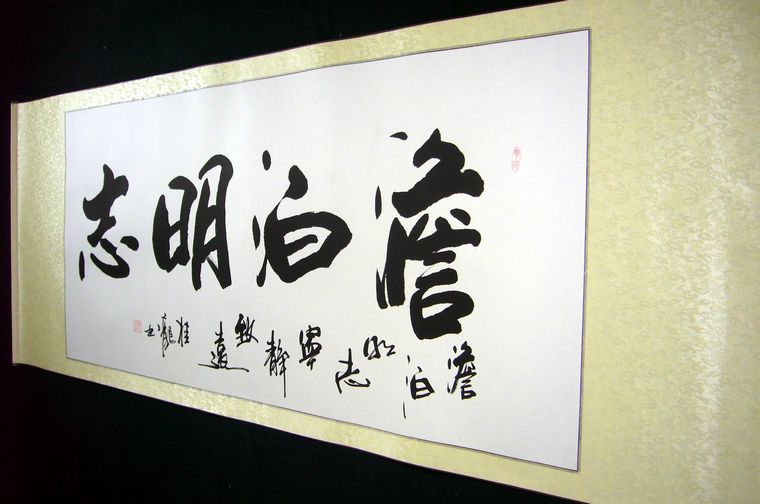 澹泊明志
澹泊明志寧靜致遠
桂龍書